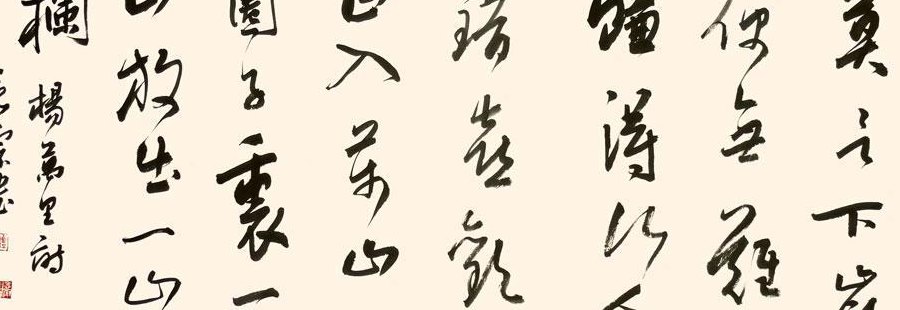 莫言下嶺
便無難
賺得行人
錯喜歡
正入萬山
圈子裏一
山放出一山
攔
楊萬里詩